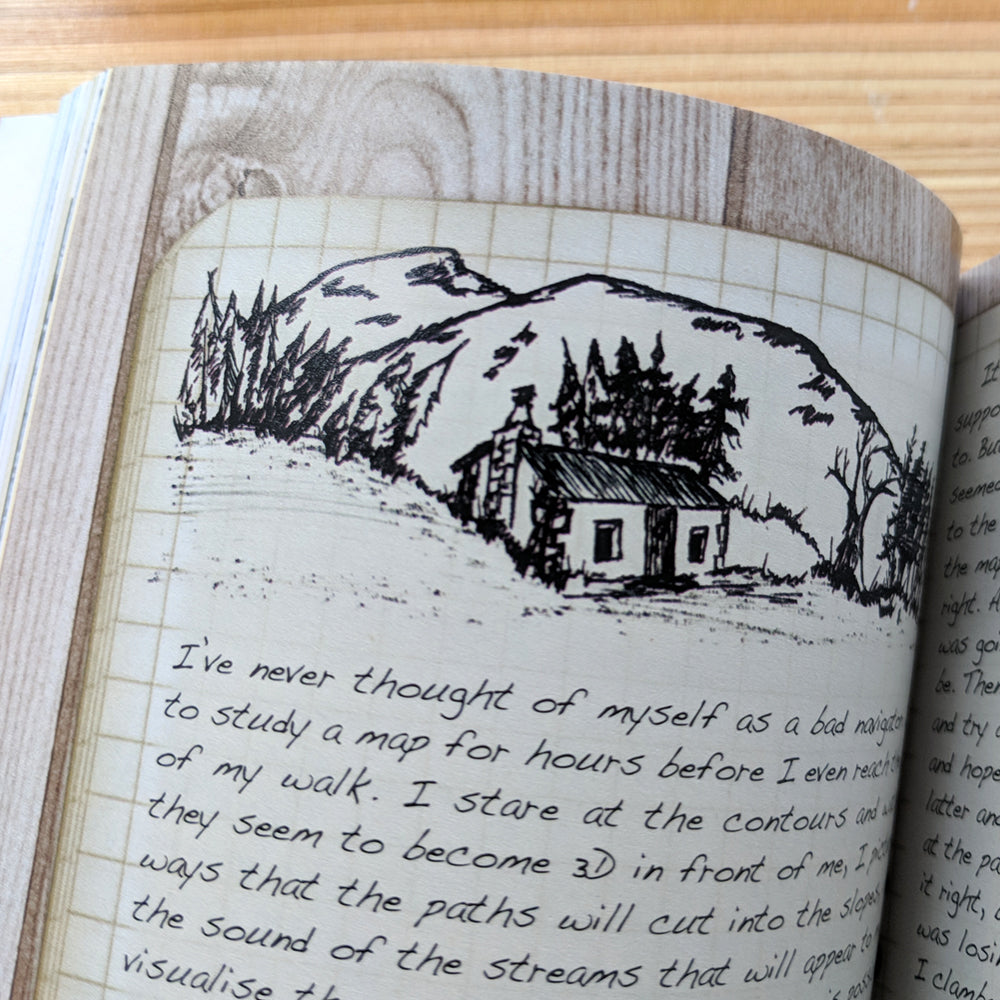 I've never thought of myself as a bad navigator
to study a map for hours before I even reach
of my walk. I stare at the contours and
they seem to become 3D in front of me, I
ways that the paths will cut into the slopes,
the sound of the streams that will appear to
visualise
It
to. But
seemed
to the
the map
right. A
was
be. Then
and try
and hope
latter and
at the
it right,
was
I